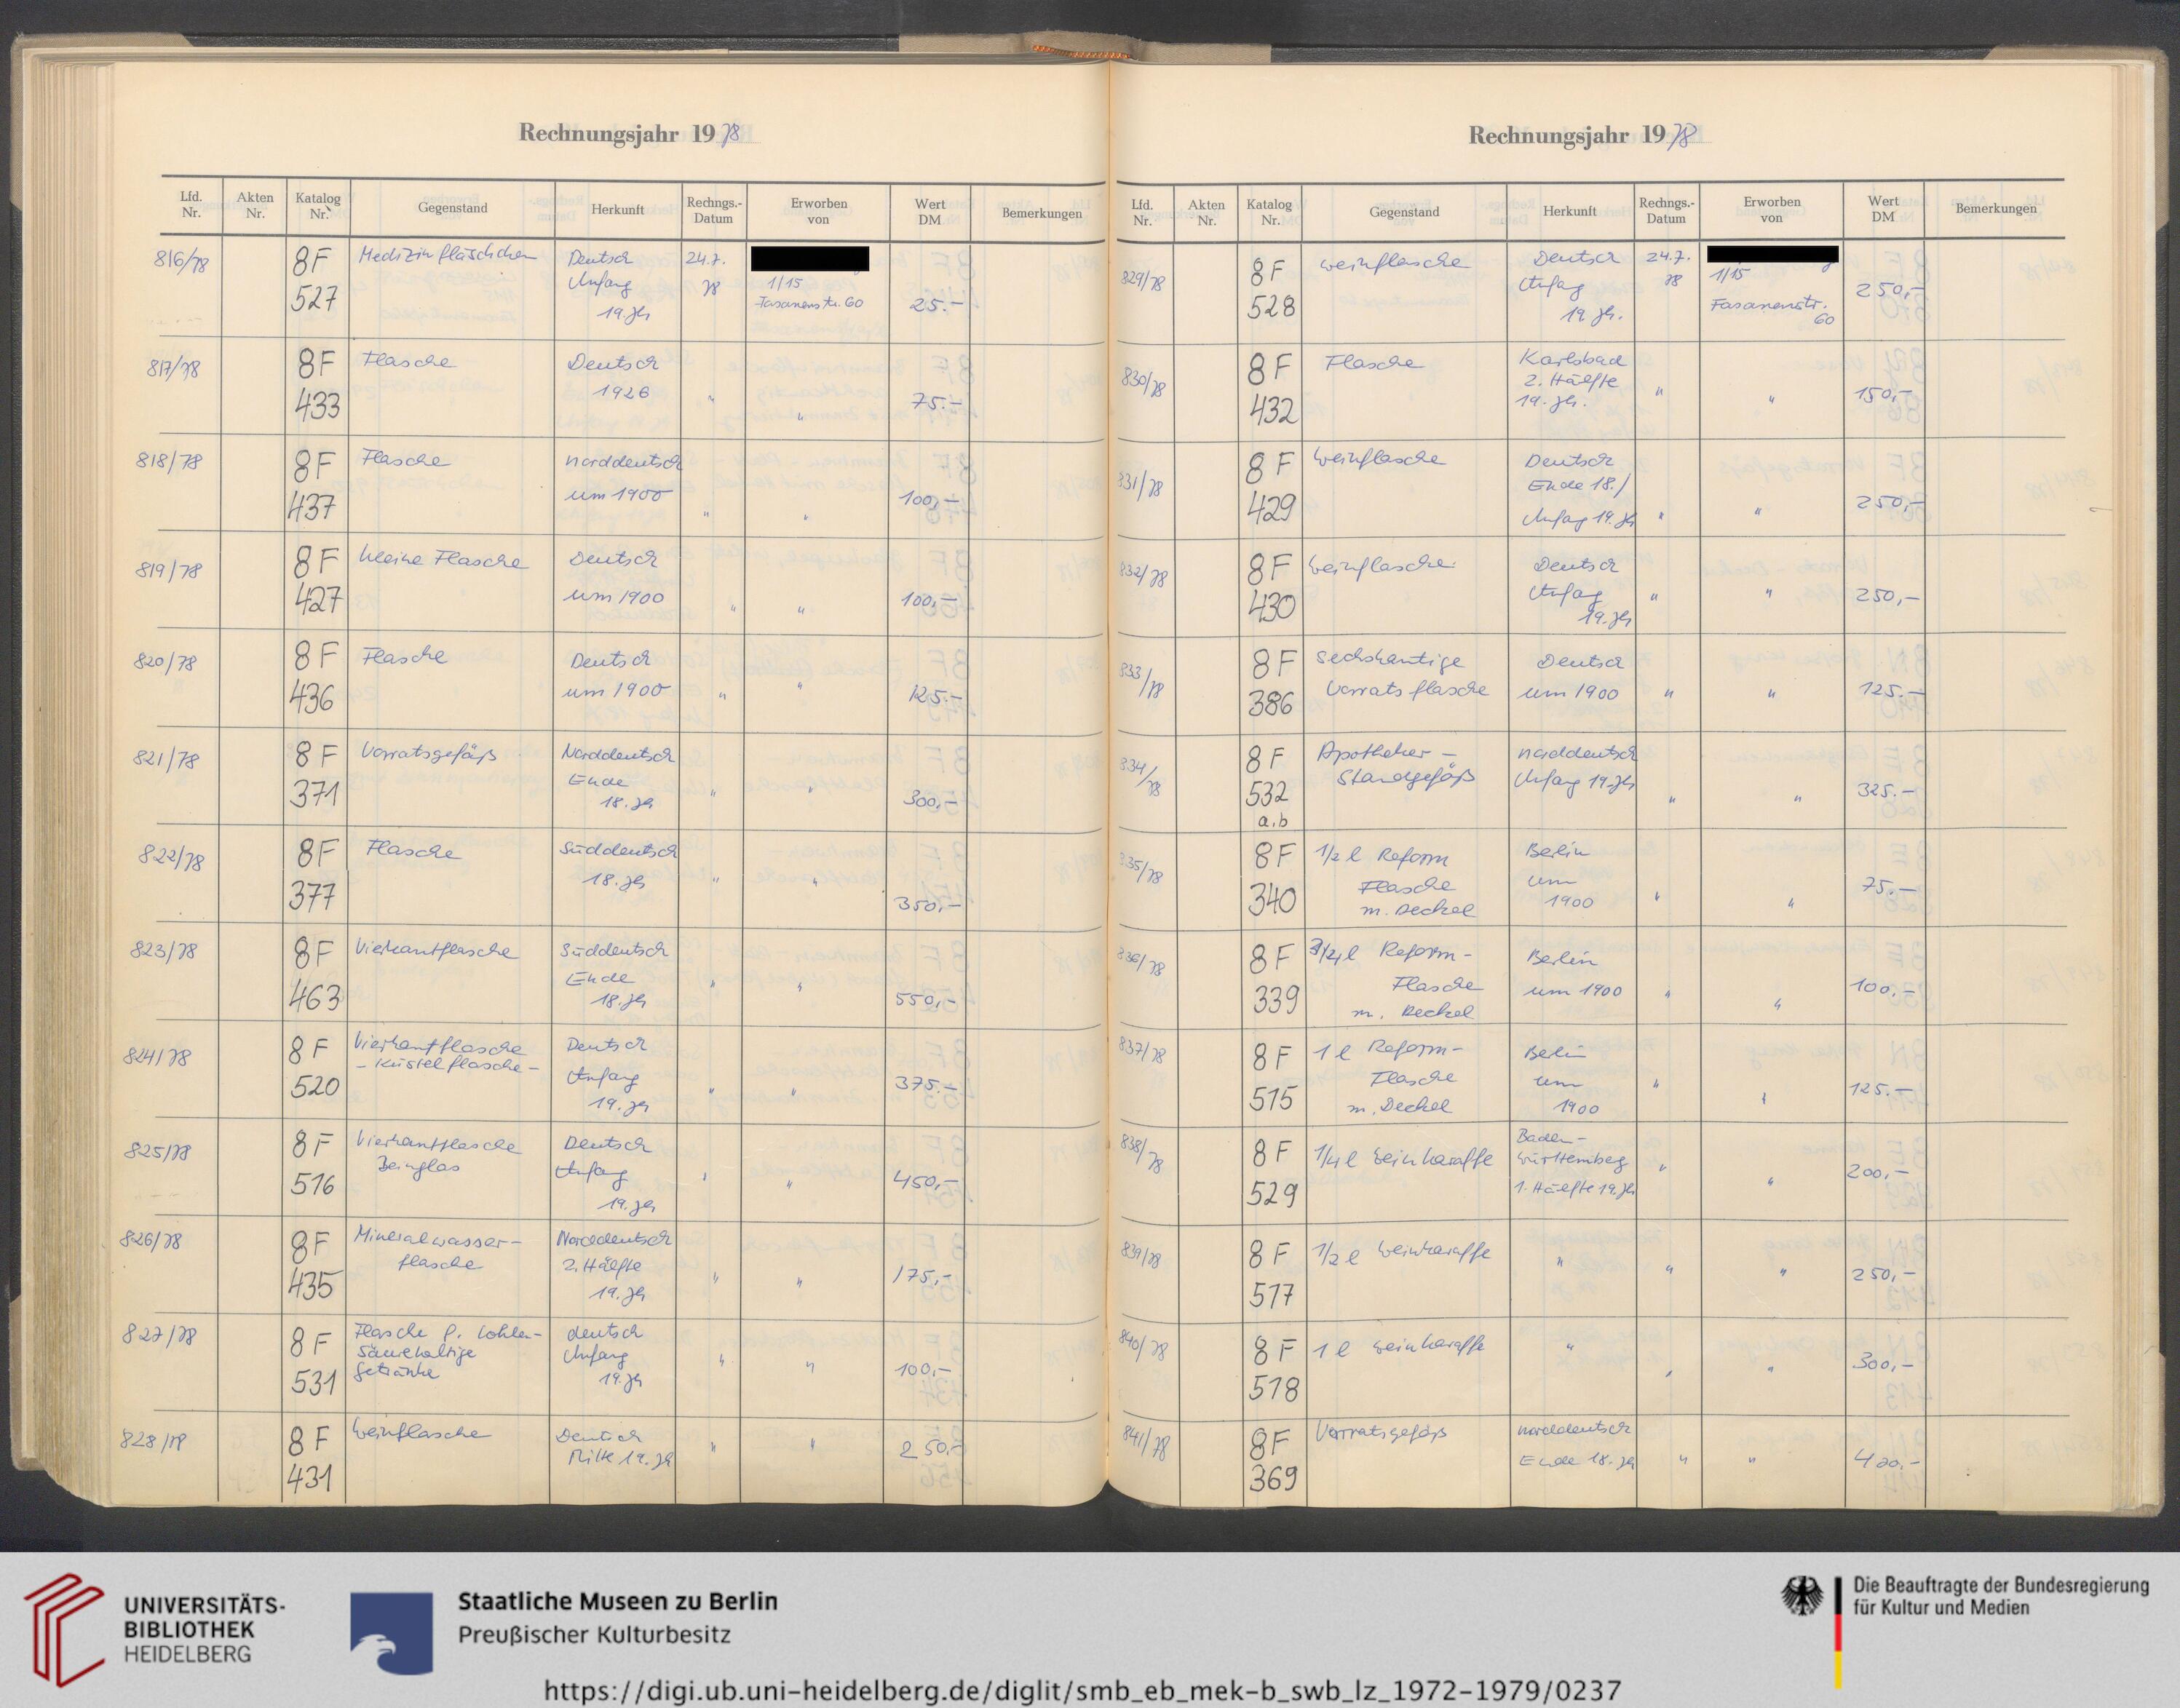 Rechnungsjahr 1978
Lfd. Nr. Akten Nr. Katalog Nr. Gegenstand Herkunft Rechngs.-Datum Erworben von Wert DM Bemerkungen
816/78 8F 527 Medizinfläschchen Deutsch Anfang 19. Jh 24.7. 78 1/15 Fasanenstr. 60 25.-
817/78 8F 433 Flasche Deutsch 1926 " " 75.-
818/78 8F 437 Flasche norddeutsch um 1900 " " 100,-
819/78 8F 427 kleine Flasche Deutsch um 1900 " " 100,-
820/78 8F 436 Flasche Deutsch um 1900 " " 125.-
821/78 8F 371 Vorratsgefäß Norddeutsch Ende 18. Jh " " 300,-
822/78 8F 377 Flasche Süddeutsch 18. Jh " " 350,-
823/78 8F 463 Vierkantflasche Süddeutsch Ende 18. Jh " " 550,-
824/78 8F 520 Vierkantflasche - Küstelflasche - Deutsch Anfang 19. Jh " " 375.-
825/78 8F 516 Vierkantflasche Beinglas Deutsch Anfang 19. Jh " " 450,-
826/78 8F 435 Mineralwasser-flasche Norddeutsch 2. Hälfte 19. Jh " " 175,-
827/78 8F 531 Flasche f. kohlen-säurehaltige Getränke deutsch Anfang 19. Jh " " 100,-
828/78 8F 431 Weinflasche Deutsch Mitte 19. Jh " " 250,-
Rechnungsjahr 1978
Lfd. Nr. Akten Nr. Katalog Nr. Gegenstand Herkunft Rechngs.-Datum Erworben von Wert DM Bemerkungen
829/78 8F 528 Weinflasche Deutsch Anfang 19. Jh. 24.7. 78 1/15 Fasanenstr. 60 250,-
830/78 8F 432 Flasche Karlsbad 2. Hälfte 19. Jh. " " 150,-
831/78 8F 429 Weinflasche Deutsch Ende 18./ Anfag 19. Jh " " 250,-
832/78 8F 430 Weinflasche Deutsch Anfag 19. Jh " " 250,-
833/78 8F 386 Sechskantige Vorratsflasche Deutsch um 1900 " " 125.-
834/78 8F 532 a,b Apotheker - Standgefäß norddeutsch Anfang 19. Jh " " 325.-
835/78 8F 340 1/2 l Reform Flasche m. Deckel Berlin um 1900 " " 75.-
836/78 8F 339 3/4 l Reform-Flasche m. Deckel Berlin um 1900 " " 100,-
837/78 8F 515 1 l Reform-Flasche m. Deckel Berlin um 1900 " " 125.-
838/78 8F 529 1/4 l Weinkaraffe Baden-Württemberg 1. Hälfte 19. Jh " " 200,-
839/78 8F 517 1/2 l Weinkaraffe " " " 250,-
840/78 8F 518 1 l Weinkaraffe " " " 300,-
841/78 8F 369 Vorratsgefäß norddeutsch Ende 18. Jh " " 400.-
UNIVERSITÄTS-
BIBLIOTHEK
HEIDELBERG
Staatliche Museen zu Berlin
Preußischer Kulturbesitz
Die Beauftragte der Bundesregierung
für Kultur und Medien
https://digi.ub.uni-heidelberg.de/diglit/smb_eb_mek-b_swb_lz_1972-1979/0237